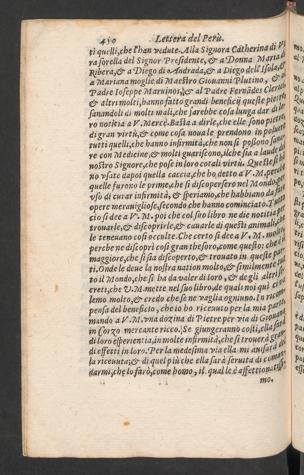 450 Lettera del Perù.
ti quelli, che l'han vedute. Alla Signora Catherina di
ra sorella del Signor Presidente, & a Donna Maria di
Ribera, & a Diego di Andrada, & a Diego dell'Isola, &
a Mariana moglie di Maestro Giovanni Plutino, & al
Padre Ioseppe Maruinos, & al Padre Fernãdes Clerico,
& altri molti, hanno fatto grandi beneficij queste pietre
sanandoli di molti mali, che sarebbe cosa lunga dar di lo
ro notitia a V. Mercè. Basta a dirle, che elle sono pietre
di gran virtù, & come cosa noua le prendono in poluere
tutti quelli, che hanno infirmità, che non si possono sana
re con Medicine, & molti guariscono, il che sia a laude di
nostro Signore, che pose in loro cotali virtù. Queste si
no vsate dapoi quella caccia, che ho detto a V. M. perche
quelle furono le prime, che si discopersero nel Mondo, &
vso di curar infirmità, & speriamo, che habbiano da fare
opere marauigliose, secondo che hanno cominciato. Tutto
cio si dee a V. M. poi che col suo libro ne die notitia per
trouarle, & discoprirle, & cauarle di questi animali, che
le teneuano così occulte. Che certo si dee a V. M. molto
perche ne discoprì così gran thesoro, come questo: che
maggiore, che si sia discoperto, & trouato in queste par
ti. Onde le deue la nostra nation molto, & similmente tut
to il Mondo, che si ha da valer di loro, & degli altri se
creti, che V. M. mette nel suo libro, de quali noi qui ci va
lemo molto, & credo che se ne vaglia ogniuno. In ricom
pensa del beneficio, che io ho riceuuto per la mia parte,
mando a V. M. vna dozina di Pietre per via di Giouan
in Corzo mercante ricco. Se giungeranno costì, ella farà
di loro esperientia, in molte infirmità, che si trouerà gran
di effetti in loro. Per la medesima via ella mi auisarà del
la riceuuta; & di quel più che ella sarà seruita di coman
darmi, che lo farò, come homo, il qual le è affettionatissi
mo,